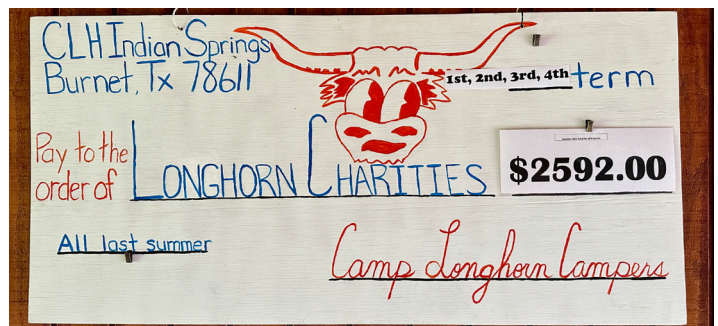 CLH Indian Springs
Burnet, Tx 78611
1st, 2nd, 3rd, 4th term
Pay to the
order of LONGHORN CHARITIES $2592.00
All last summer
Camp Longhorn Campers